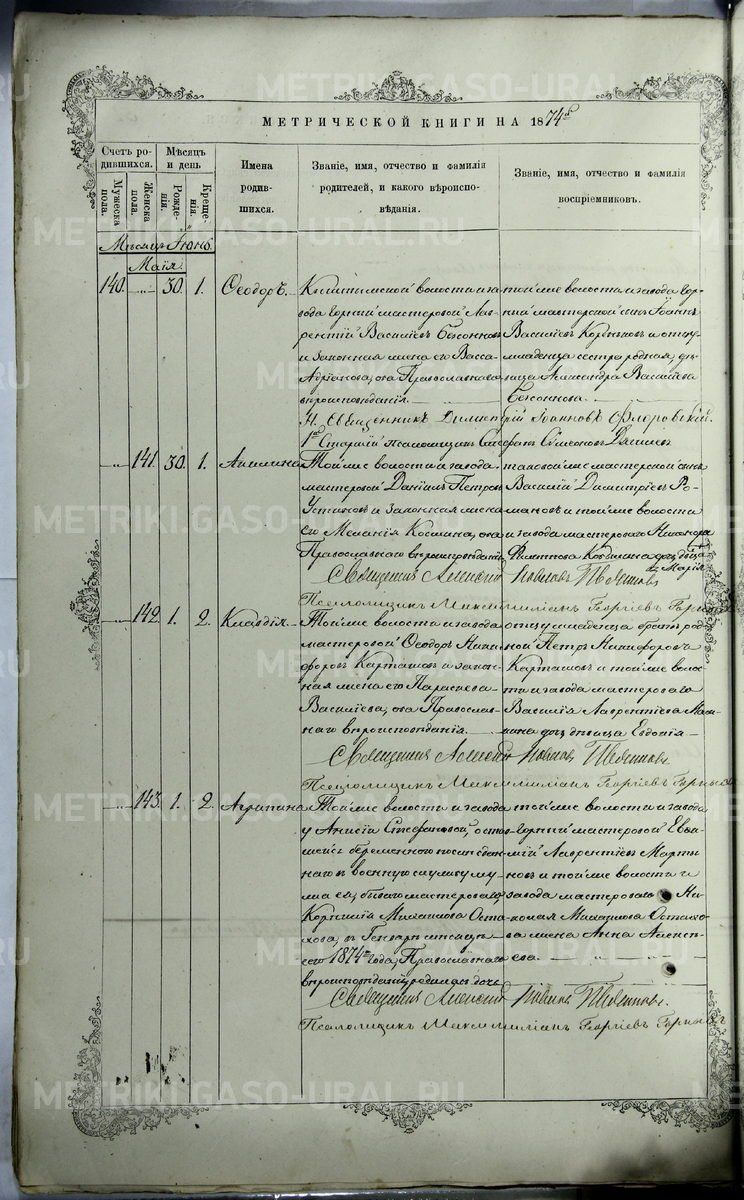 МЕТРИЧЕСКОЙ КНИГИ НА 1874й
Счетъ ро-
дившихся.
Мужеска
пола.
Женска
пола.
Мѣсяцъ
и день
Рожде-
нія.
Креще-
нія.
Имена
родив-
шихся.
Званіе, имя, отчество и фамилія
родителей, и какого вѣроиспо-
вѣданія.
Званіе, имя, отчество и фамилія
воспріемниковъ.
Мѣсяцъ Іюнь.
Маія.
140. 30. 1. Ѳеодоръ.
волости и за-
вода горный мастеровой Лав-
рентій Василіевъ
и законная жена его Васса
Адріанова, оба Православнаго
вѣроисповѣданія.
той же волости и завода гор-
ный мастерской сынъ Іоаннъ
Василіевъ и отцу
младенца сестра родная, дѣ-
вица Александра Василіева
Священникъ Димитрій Іоанновъ Флоровскій.
Старшій псаломщикъ Стефанъ Симеоновъ
141. 30. 1. Акилина
Той же волости и завода
мастеровой Даніилъ Петровъ
Устиновъ и законная жена
его Меланія Космина, оба
Православнаго вѣроисповѣданія
таковой же мастерской сынъ
Василій Димитріевъ Ро-
мановъ и той же волости
и завода мастероваго Никанора
Филиппова дочь дѣвица
Марія
Священникъ Алексій
Псаломщикъ Максимиліанъ Георгіевъ
142. 1. 2. Клавдія.
Той же волости и завода
мастеровой Ѳеодоръ Ники-
форовъ Карташовъ и закон-
ная жена его Параскева
Василіева, оба Православ-
наго вѣроисповѣданія
отцу младенца братъ род-
ной Петръ Никифоровъ
Карташовъ и той же воло-
сти и завода мастероваго
Василія Лаврентіева
дочь дѣвица Евдокія
Священникъ Алексій
Псаломщикъ Максимиліанъ Георгіевъ
143. 1. 2. Агрипина
Той же волости и завода
у Анисіи Стефановой, остав-
шейся беременною послѣ взя-
таго въ военную службу му-
жа ея, бывшаго мастероваго
Корнилія Михаилова Оста-
хова, въ Генварѣ мѣсяцѣ
сего 1874го года, Православнаго
вѣроисповѣданія, родилась дочь
той же волости и завода
горный мастеровой
Лаврентіевъ Марты-
новъ и той же волости и
завода мастероваго Ни-
колая Михаилова Остахо-
ва жена Анна Алексѣ-
ева.
Священникъ Алексій
Псаломщикъ Максимиліанъ Георгіевъ
METRIKI.GASO-URAL.RU